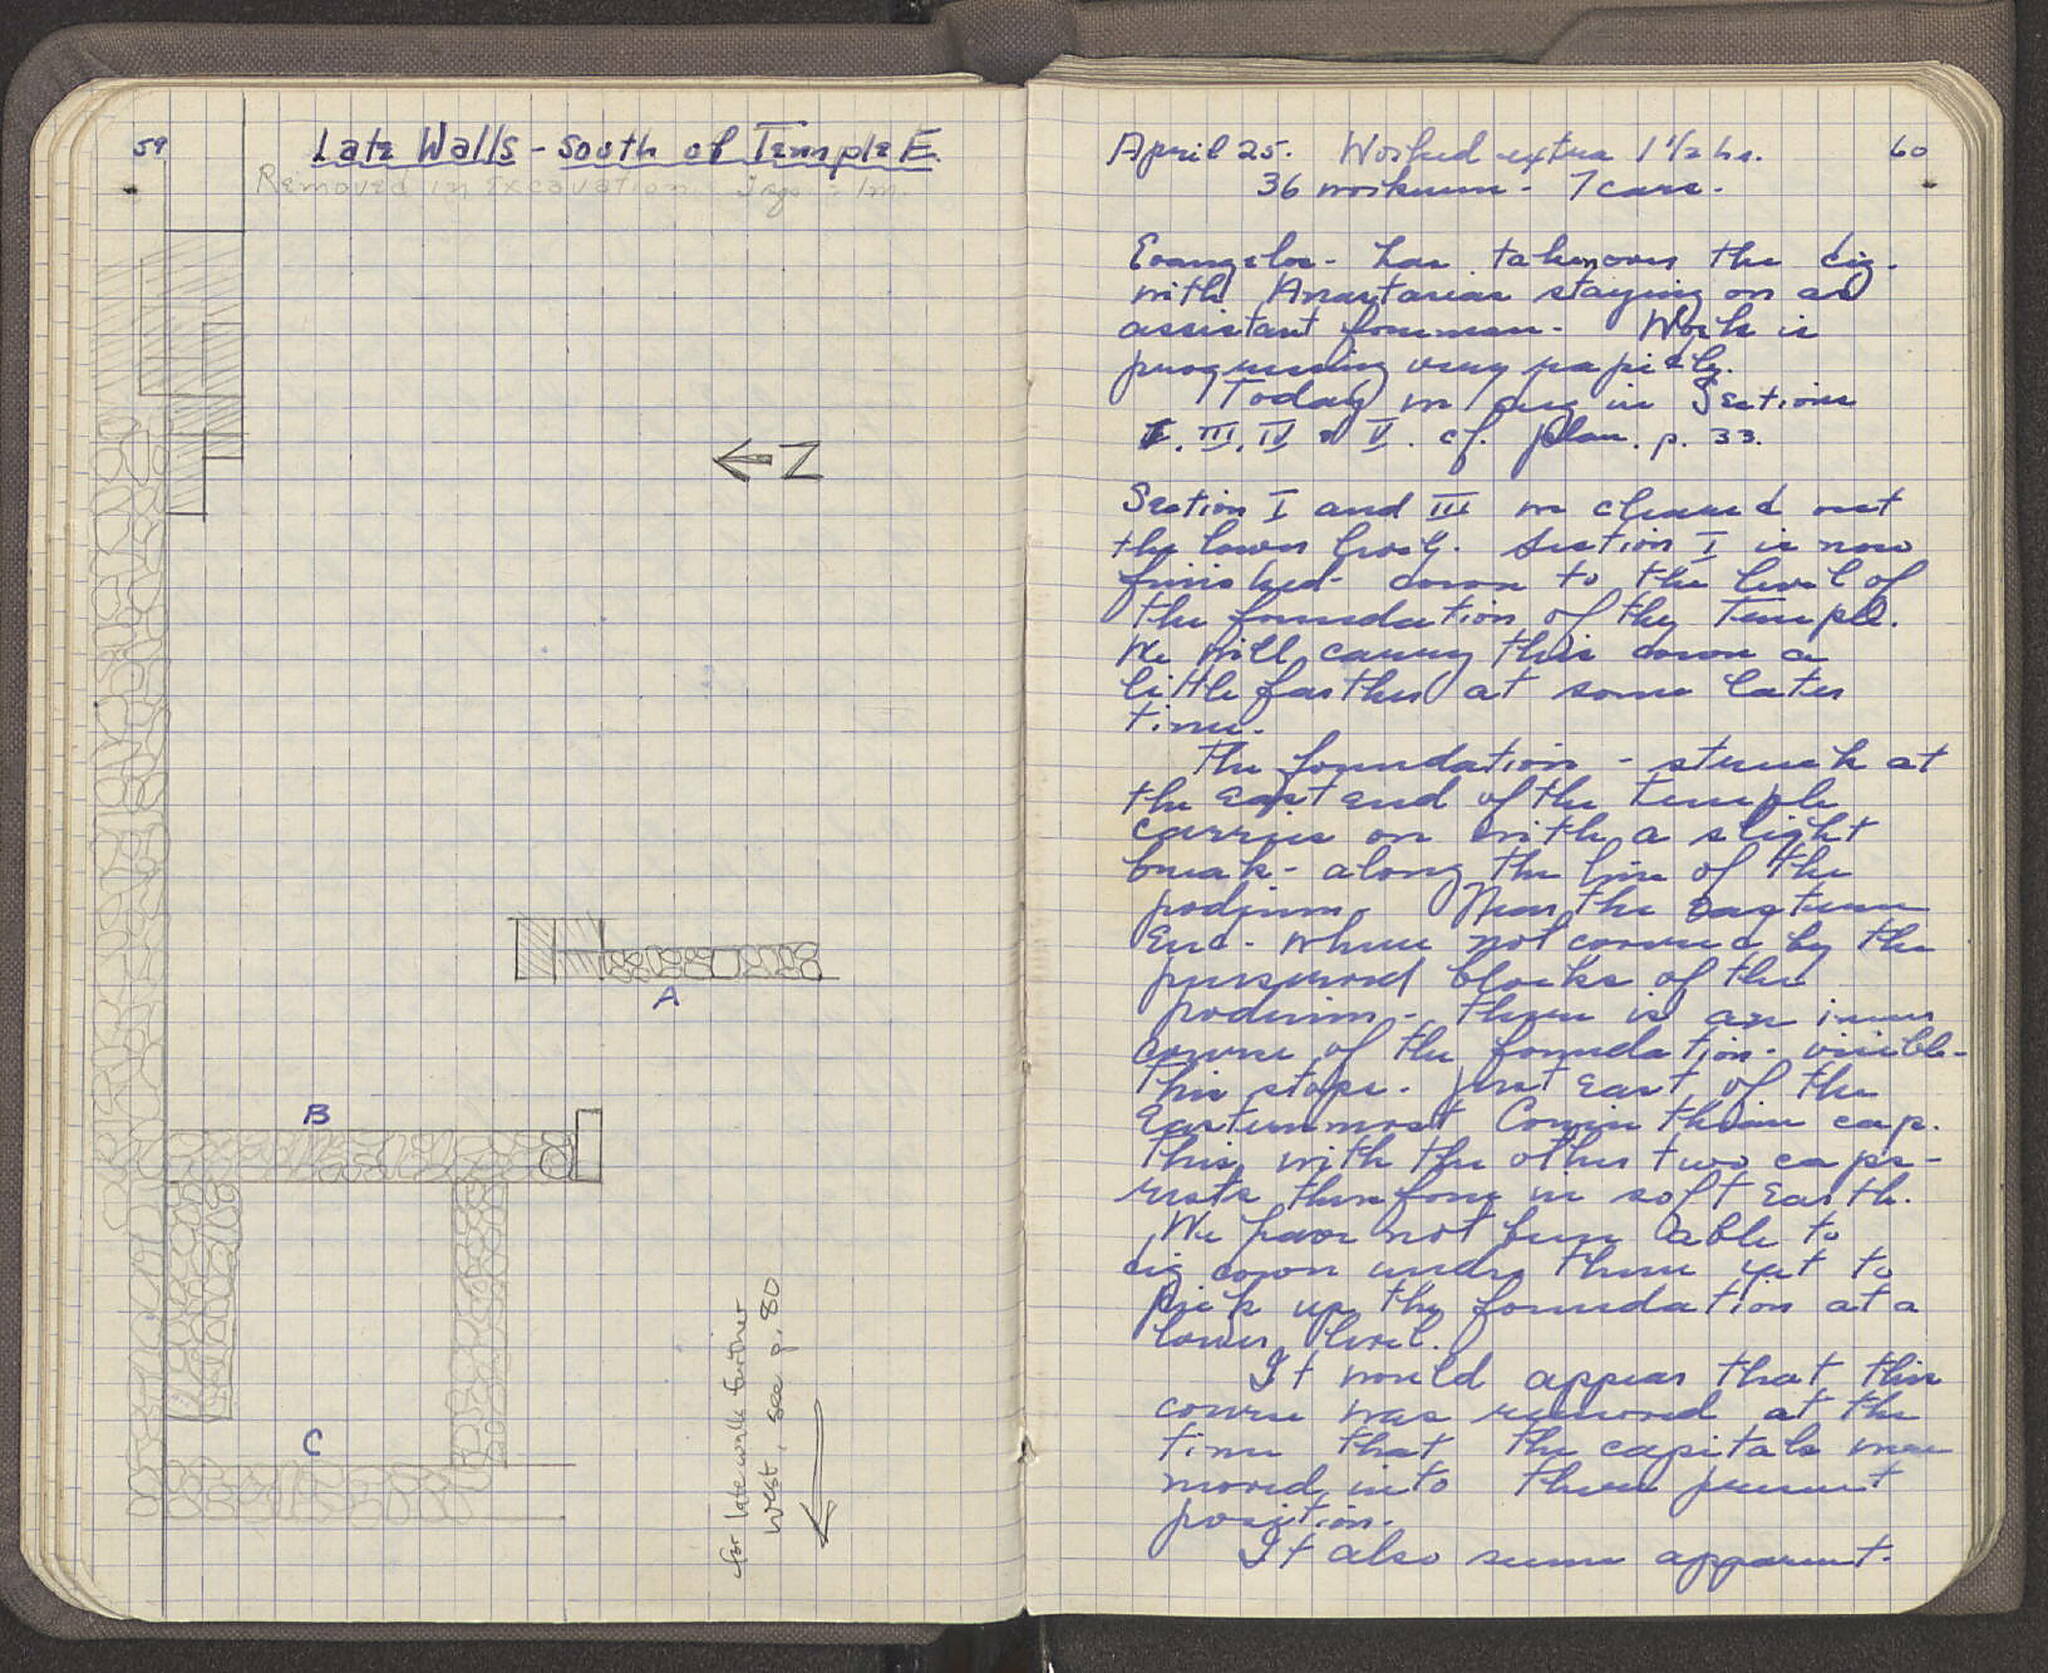 59
Late Walls - South of Temple E.
Removed in Excavation. 1 sq. = 1m.
N
A
B
C
for late walls further
west, see p. 80
April 25. Worked extra 1 1/2 hs. 60
36 workmen - 7 cars.
Evangelos - has taken over the dig -
with Anastasias staying on as
assistant foreman - Work is
progressing very rapidly.
Today we dug in Sections
I. III. IV & V. cf. plan. p. 33.
Section I and III we cleared out
the lower level. Section I is now
finished - down to the level of
the foundation of the Temple.
We will carry this down a
little farther at some later
time.
The foundation - struck at
the East end of the temple
carries on with a slight
break - along the line of the
podium. Near the eastern
End - where not covered by the
preserved blocks of the
podium - there is an inner
course of the foundation - visible -
This stops - just East of the
Easternmost Corinthian cap.
This, with the other two caps -
rests therefore in soft Earth.
We have not been able to
dig down under them yet to
pick up the foundation at a
lower level.
It would appear that this
course was removed at the
time that the capitals were
moved into there present
position.
It also seems apparent -